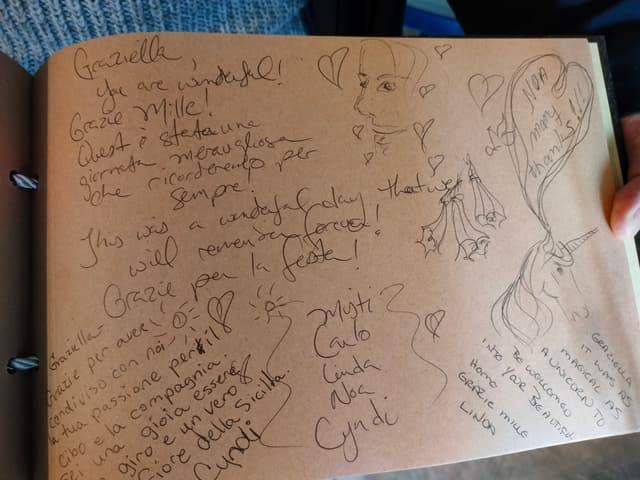 Graziella,
You are wonderful!
Grazie Mille!
Quest è stata una
giornata meravigliosa
che ricorderemo per
sempre!
This was a wonderful day that we
will remember forever!
Grazie per la festa!
Graziella-
Grazie per aver
condiviso con noi
la tua passione per il
cibo e la compagnia.
Sei una gioia essere
in giro e un vero
Fiore della Sicilia.
Cyndi
Mysti
Carlo
Linda
Noa
Cyndi
NOA
many
thanks!!!
GRAZIELLA
IT WAS AS
MAGICAL AS
A UNICORN TO
BE WELCOMED
INTO YOUR BEAUTIFUL
HOME
GRAZIE MILLE
LINDA